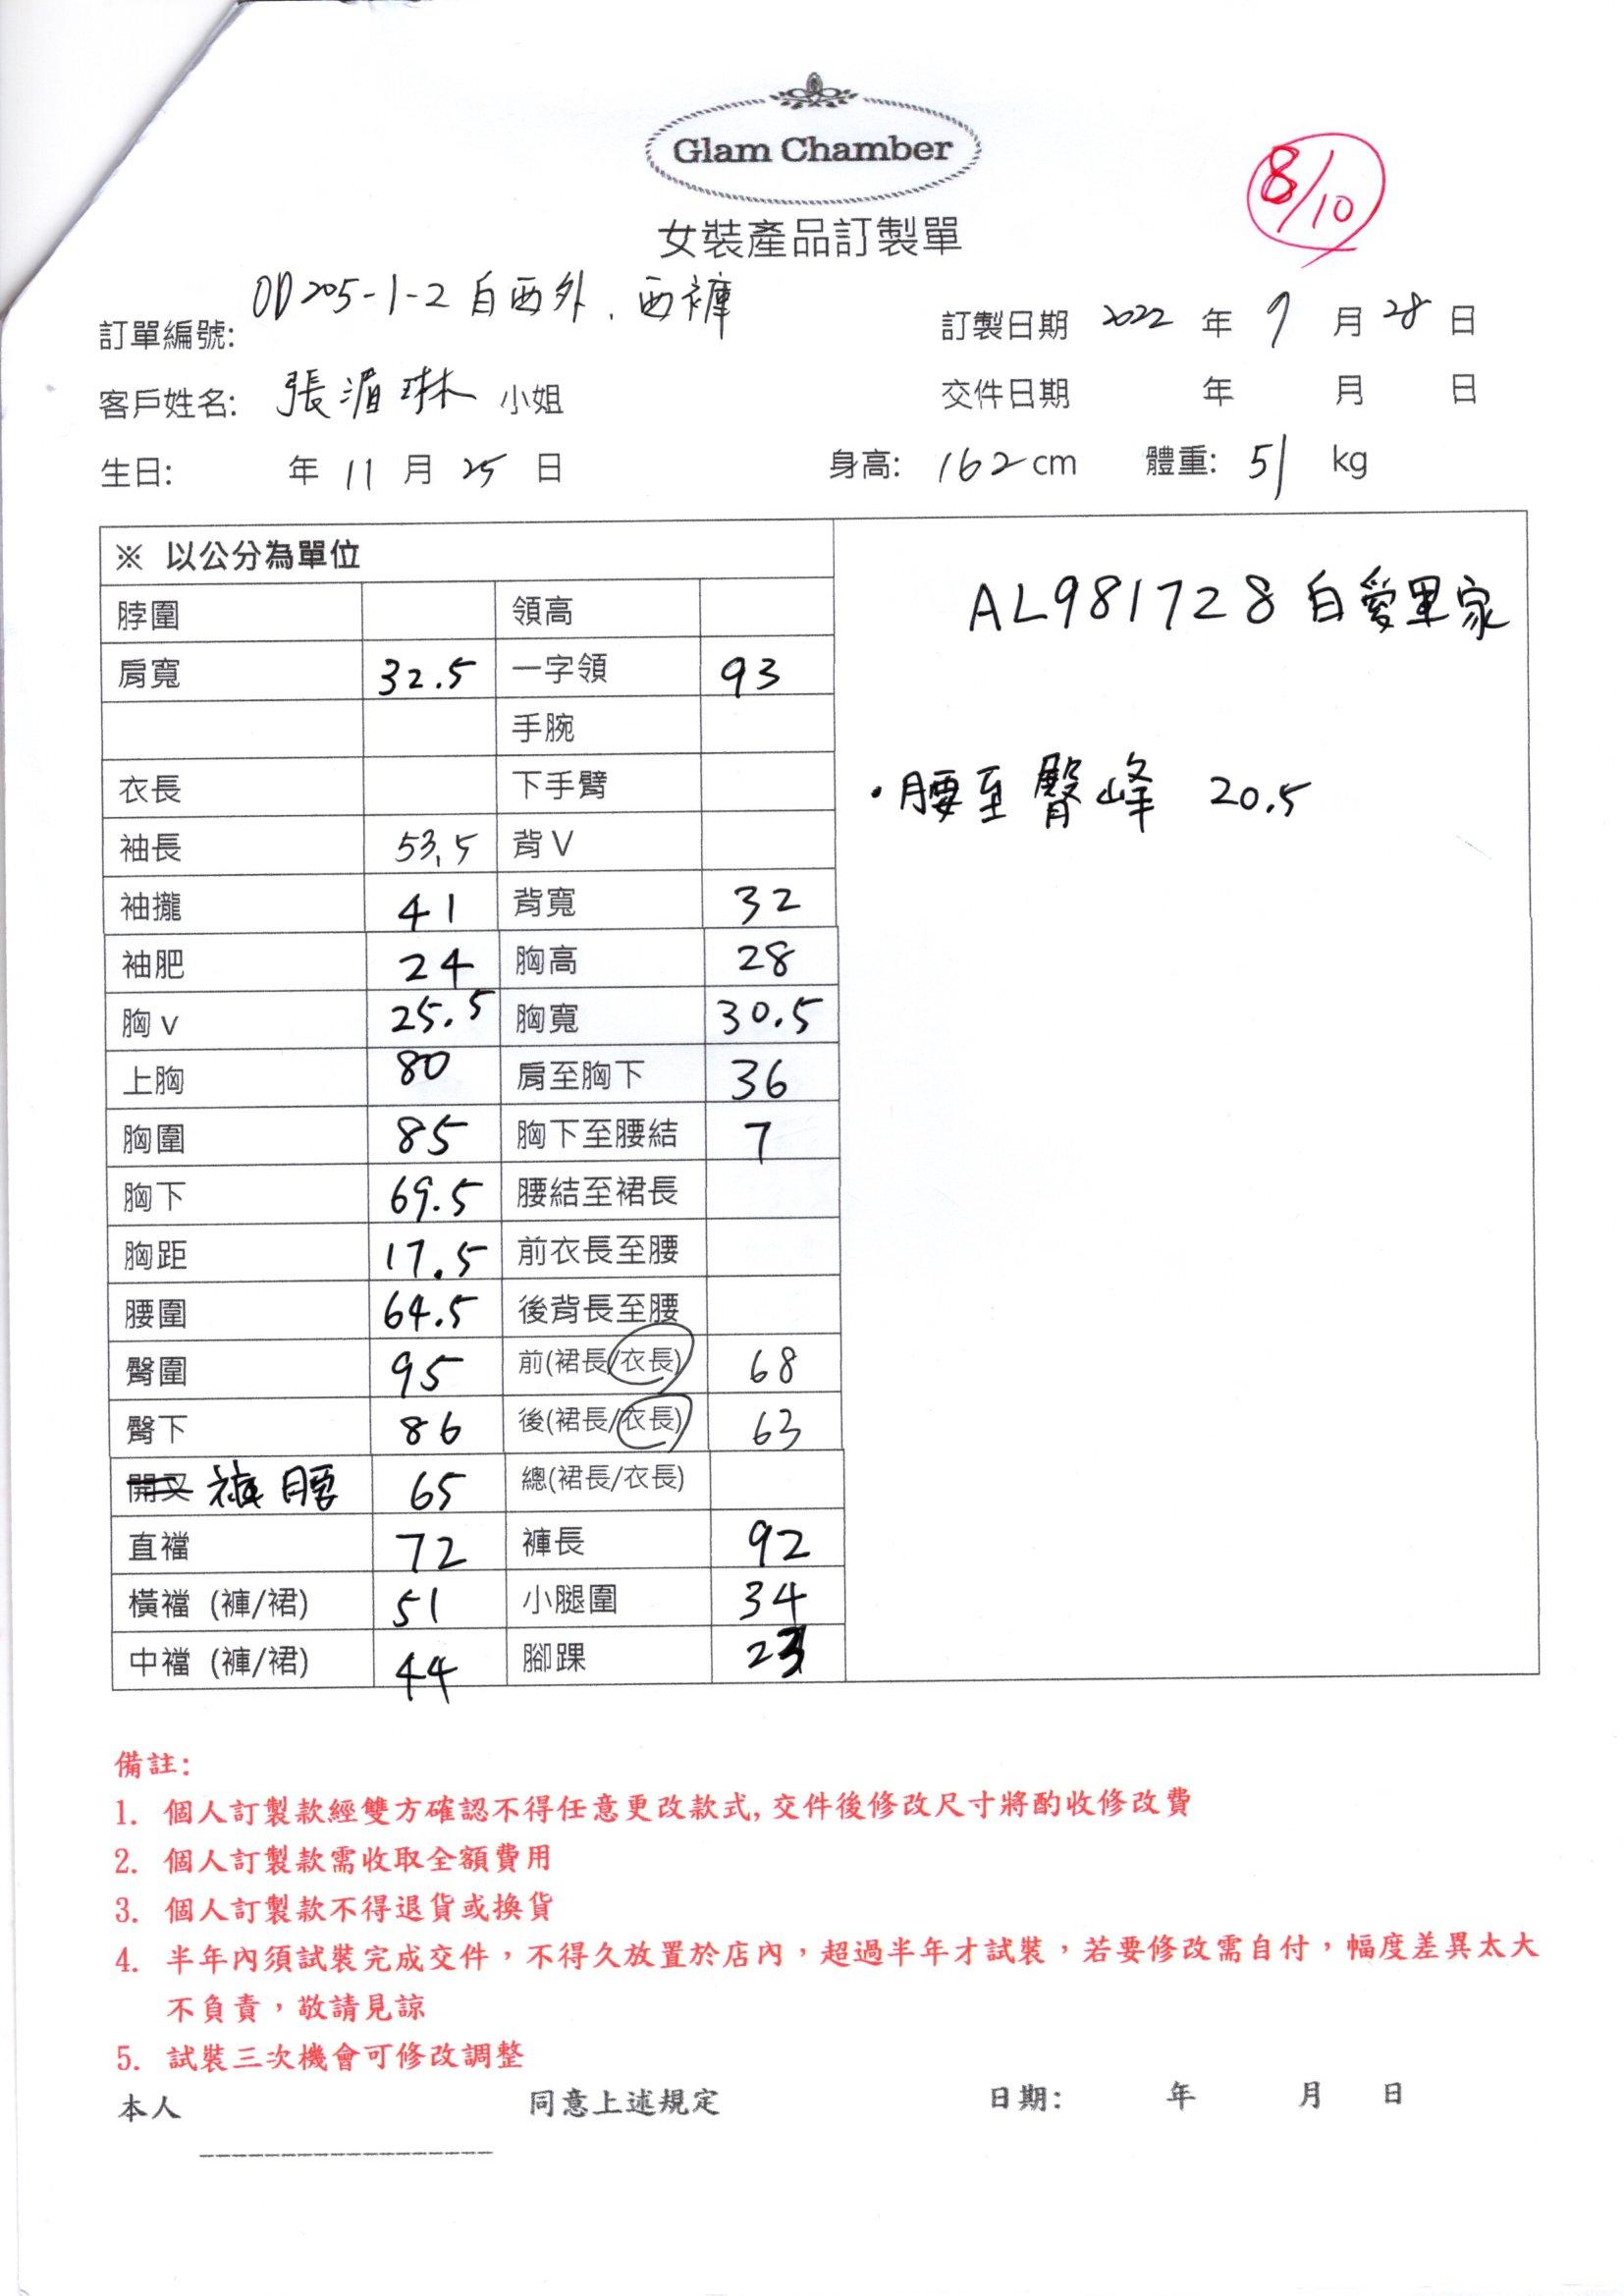 Glam Chamber
8/10
女裝產品訂製單
訂單編號: OD205-1-2 白西外、西褲
訂製日期 2022 年 9 月 28 日
客戶姓名: 張湄琳 小姐
交件日期 年 月 日
生日: 年 11 月 25 日 身高: 162 cm 體重: 51 kg
※ 以公分為單位
AL981728 白愛里家
脖圍 領高
肩寬 32.5 一字領 93
手腕
・腰至臀峰 20.5
衣長 下手臂
袖長 53.5 背V
袖攏 41 背寬 32
袖肥 24 胸高 28
胸v 25.5 胸寬 30.5
上胸 80 肩至胸下 36
胸圍 85 胸下至腰結 7
胸下 69.5 腰結至裙長
胸距 17.5 前衣長至腰
腰圍 64.5 後背長至腰
臀圍 95 前(裙長/衣長) 68
臀下 86 後(裙長/衣長) 63
開叉 褲腰 65 總(裙長/衣長)
直襠 72 褲長 92
橫襠 (褲/裙) 51 小腿圍 34
中襠 (褲/裙) 44 腳踝 23
備註:
1. 個人訂製款經雙方確認不得任意更改款式,交件後修改尺寸將酌收修改費
2. 個人訂製款需收取全額費用
3. 個人訂製款不得退貨或換貨
4. 半年內須試裝完成交件，不得久放置於店內，超過半年才試裝，若要修改需自付，幅度差異太大
不負責，敬請見諒
5. 試裝三次機會可修改調整
本人 同意上述規定 日期: 年 月 日